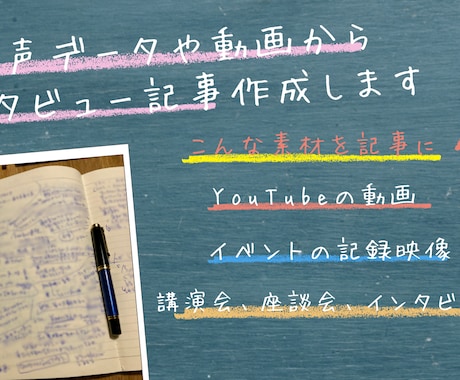 声データや動画から
タビュー記事作成します
こんな素材を記事に
YouTubeの動画
イベントの記録映像
講演会、座談会、インタビ